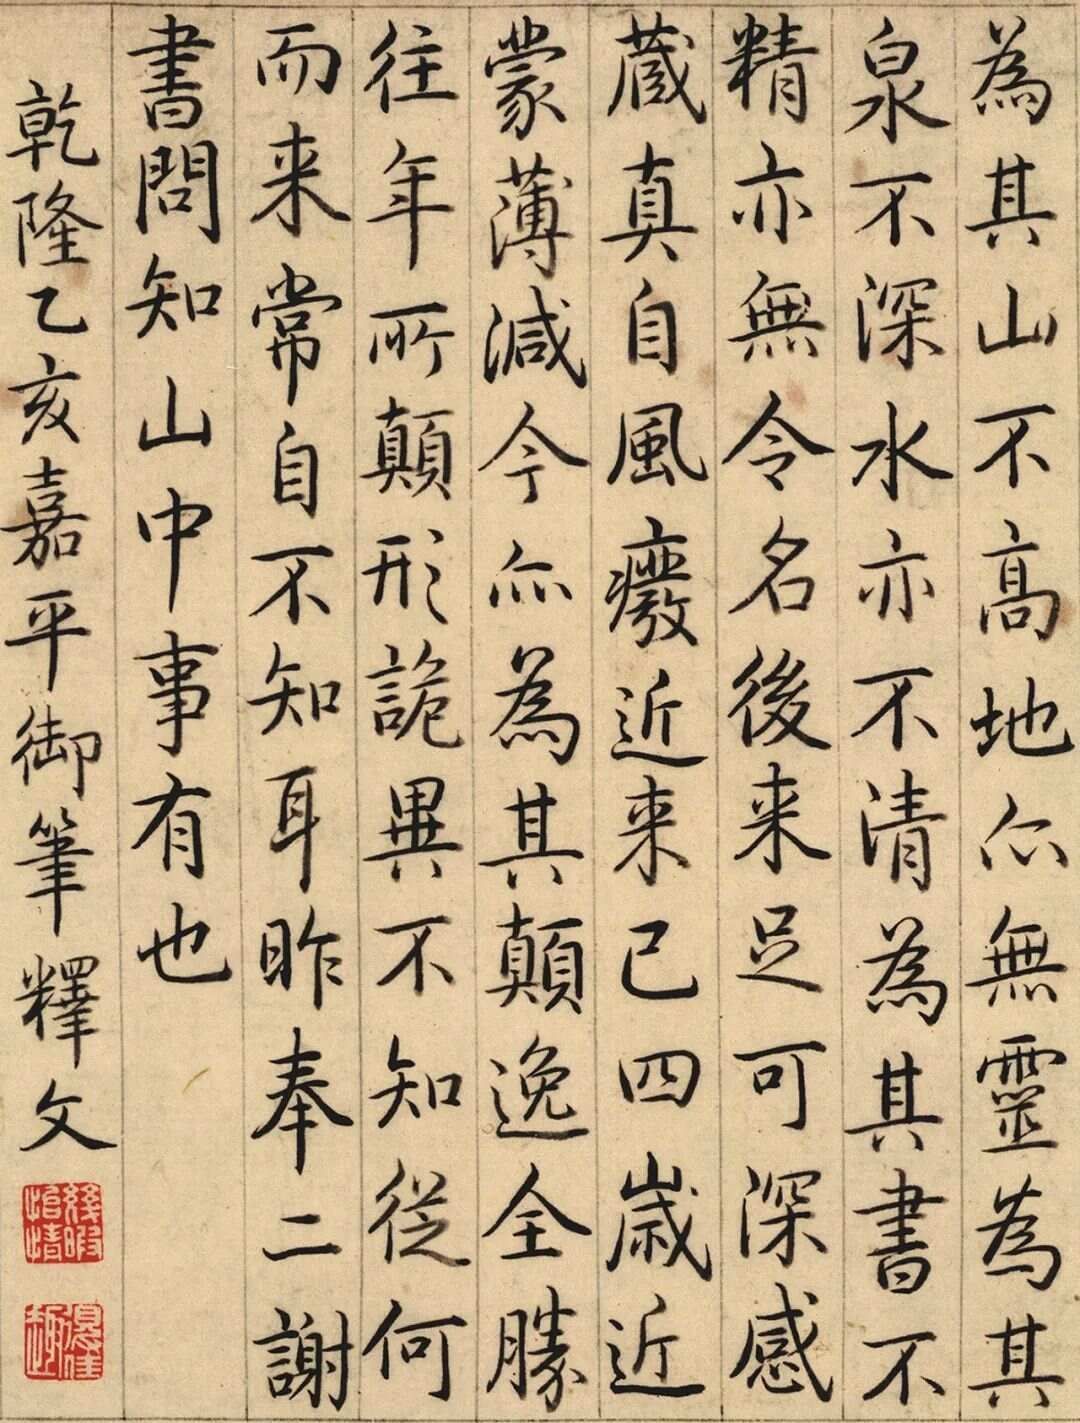 為其山不高地亦無靈為其
泉不深水亦不清為其書不
精亦無令名後来足可深感
蔵真自風癈近来已四歲近
蒙薄減今亦為其顛逸全勝
往年所顛形詭異不知従何
而来常自不知耳昨奉二謝
書問知山中事有也
乾隆乙亥嘉平御筆釋文
幾暇怡情
得佳趣